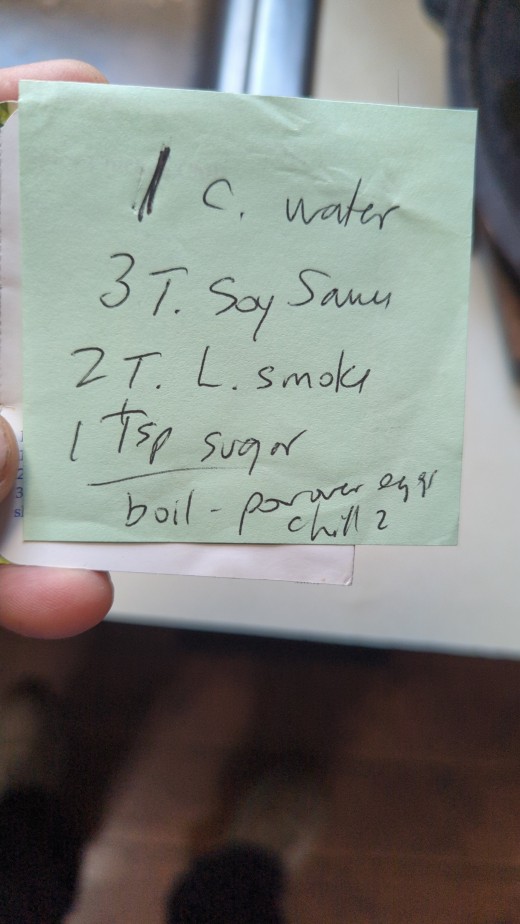 1 C. water
3 T. Soy Sauce
2 T. L. smoke
1 Tsp sugar
boil - pour over eggs
chill 2